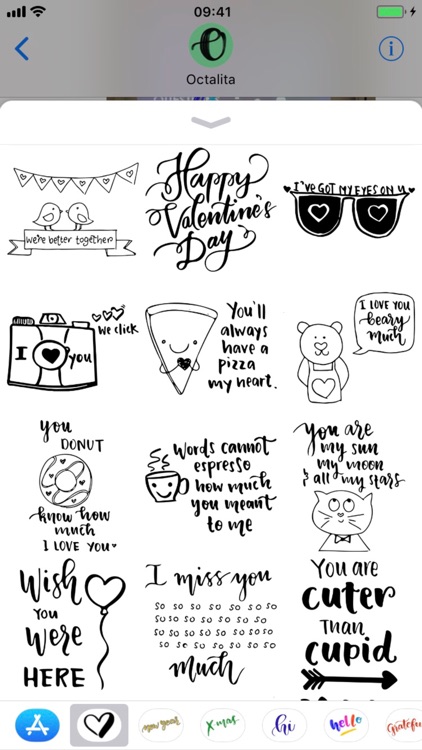 09:41
Octalita
we're better together
Happy
Valentine's
Day
I'VE GOT MY EYES ON U
I you
we click
You'll
always
have a
pizza
my heart.
I LOVE YOU
beary
much
you
DONUT
know how
much
I LOVE YOU
words cannot
espresso
how much
you meant
to me
you are
my sun
my moon
& all my stars
Wish
YOU
were
HERE
I miss you
so so so so so so so
so so so so so so so
so so so so so so so so
so so so so so so so
much
You are
cuter
THAN
cupid
new year
Xmas
hi
hello
Grateful